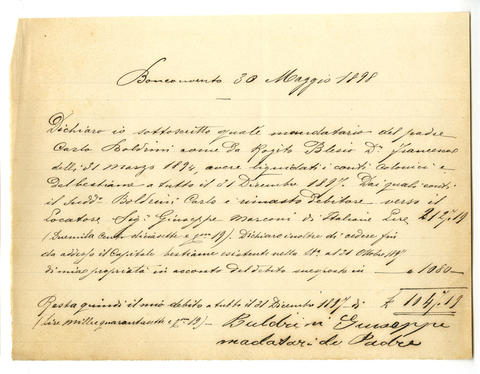 Bonconvento 30 Maggio 1898
Dichiaro io sottoscritto quale mandatario del padre
Carlo Boldrini come da Rogito Blesio Dr. Francesco
delli 31 Marzo 1894, avere liquidati i conti colonici e
del bestiame a tutto il 31 Dicembre 1897. Dai quali conti
il sudd.o Boldrini Carlo è rimasto debitore verso il
Locatore Sig. Giuseppe Marconi di Italiane Lire 2127.19
(Duemila cento diciasette e 19). Dichiaro inoltre di cedere fin
da adesso il Capitale bestiame esistente nella al 31 Ottobre
di mia proprietà in acconto del debito suespresto in " 1080 —
Resta quindi il mio debito a tutto il 31 Dicembre 1897 di £ 1047.19
(Lire mille quarantasette e 19) —
Buldri ni Giuseppe
madatari de Padre